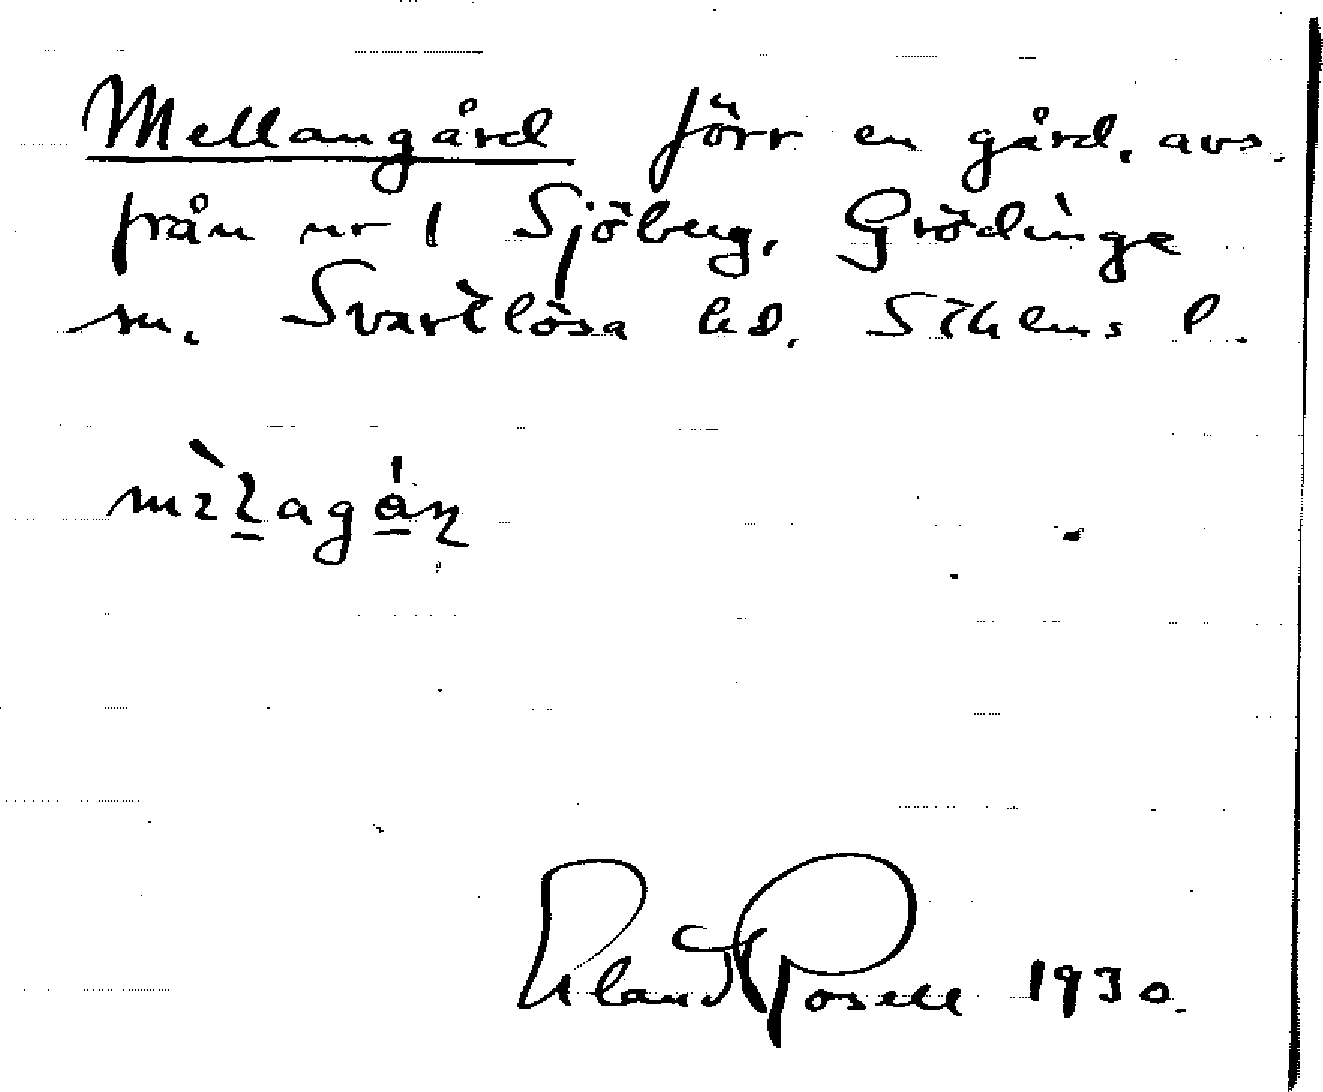 Mellangård förr en gård, avs.
från nr 1 Sjöberg, Grödinge
sn. Svartlösa hd. Sthlms l.
Erland Rosell 1930.